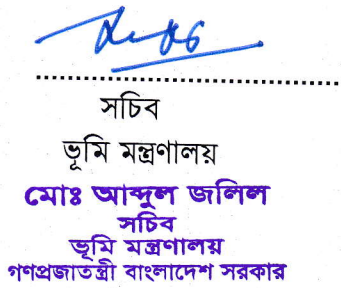 সচিব
ভূমি মন্ত্রণালয়
মোঃ আব্দুল জলিল
সচিব
ভূমি মন্ত্রণালয়
গণপ্রজাতন্ত্রী বাংলাদেশ সরকার